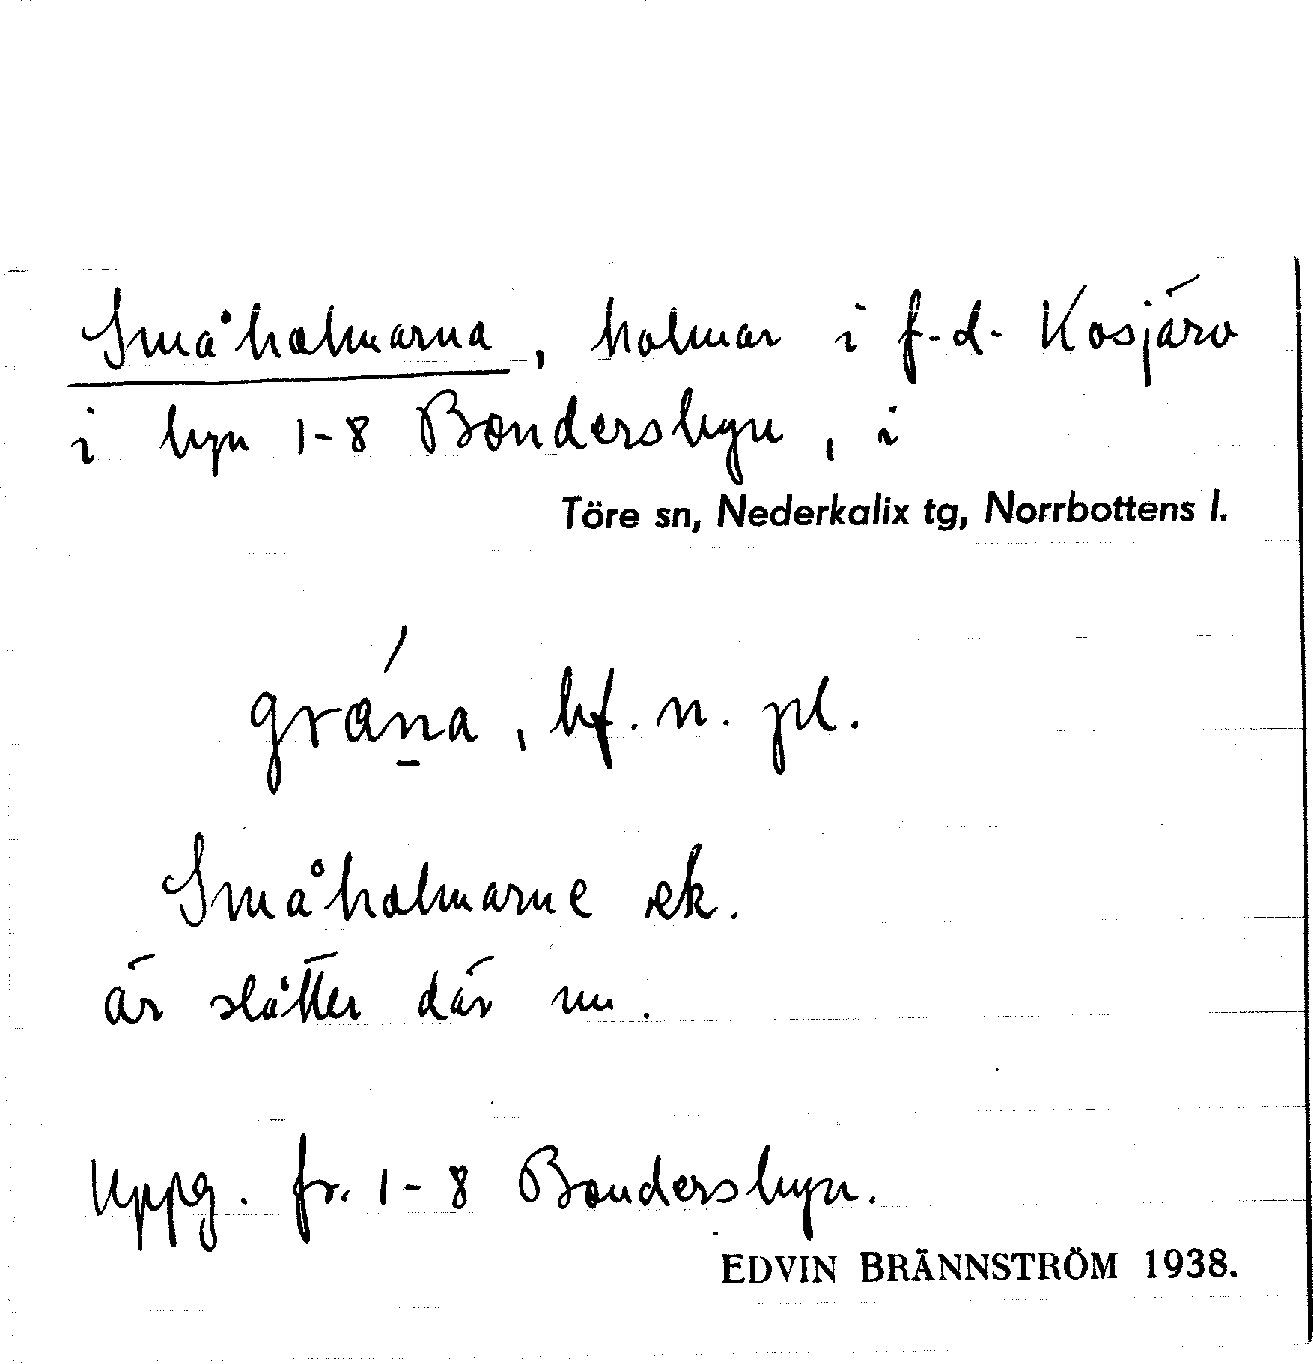 Småholmarna, holmar i f.d. Kosjärv
i byn 1-8 Bondersbyn, i
Töre sn, Nederkalix tg, Norrbottens l.
grána, bf. n. pl.
Småholmarne ek.
är slåtter där nu.
Uppg. fr. 1-8 Bondersbyn.
EDVIN BRÄNNSTRÖM 1938.